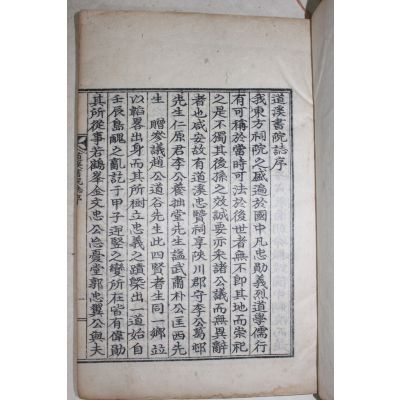 道溪書院誌序
我東方祠院之盛遍於國中凡忠勛義烈道學儒行
有可稱於當時可法於後世者無不即其地而崇祀
之是不獨其後孫之效誠要亦采諸公議而無異辭
者也咸安故有道溪忠賢祠享陜川郡守李公
先生仁原君李公養拙堂先生謚武肅朴公匡西先
生 贈參議趙公道谷先生此四賢者生同一鄉並
以韜畧出身而其所樹立忠義之蹟槩出一道始自
壬辰島醜之亂訖于甲子逆豎之變所在皆有偉勛
其所從事若鶴峯金文忠公忘憂堂郭忠翼公與夫